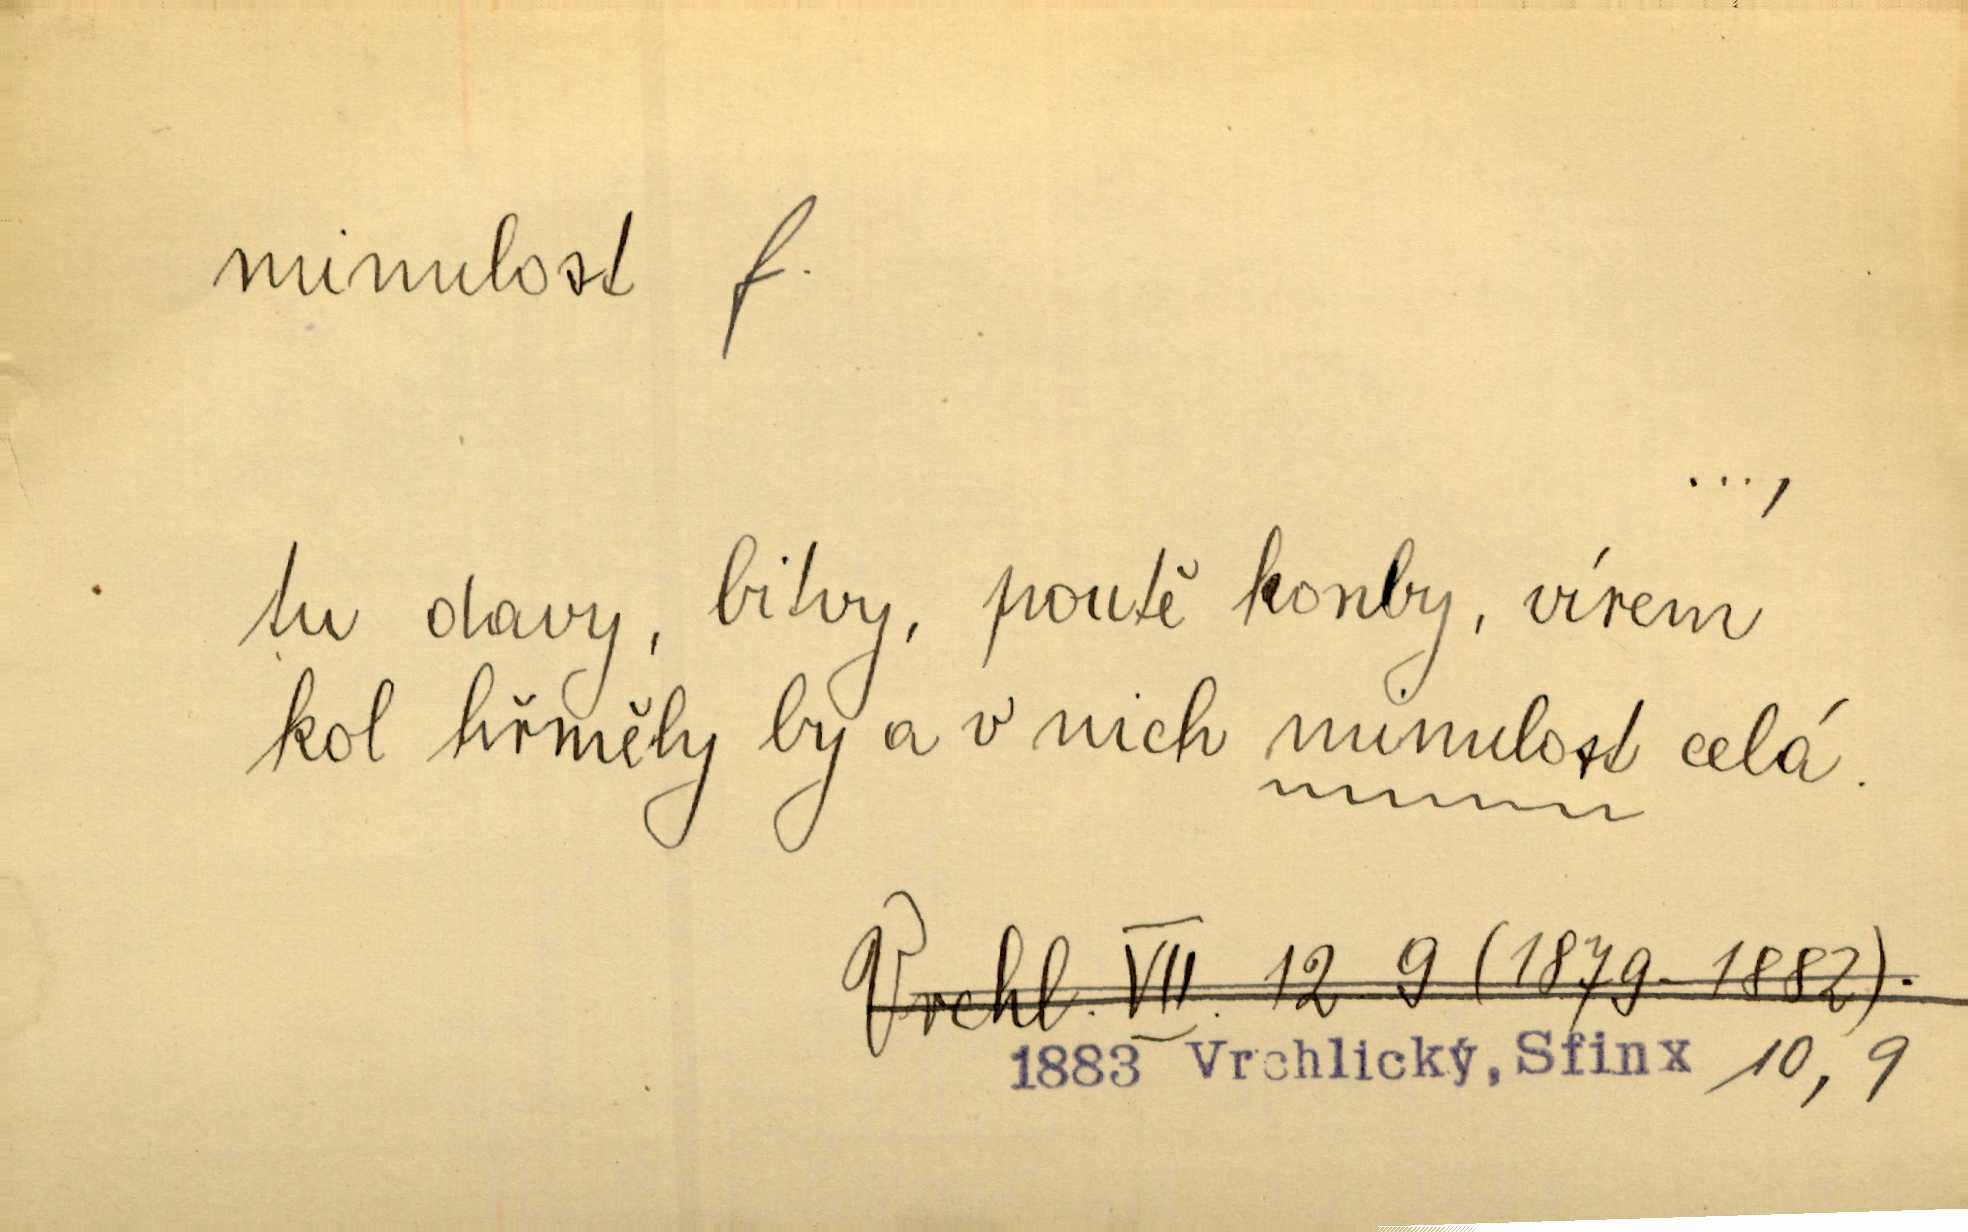 minulost f.
...,
tu davy, bitvy, poutě konby, vírem
kol hřměly by a v nich minulost celá.
Vrchl. VII. 12 9 (1879-1882).
1883 Vrchlický, Sfinx 10, 9